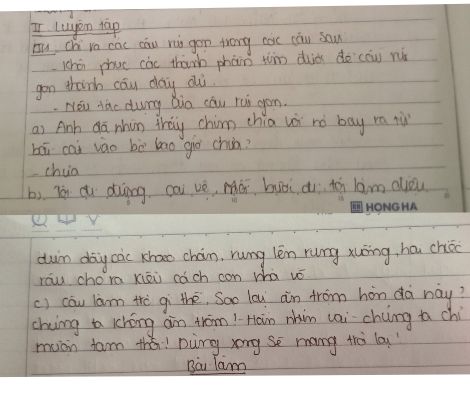 II Luyện tập
Bài1, chỉ ra các câu rút gọn trong các câu sau
- Khôi phục các thành phần đủ để câu rút
gọn thành câu đầy đủ.
- Nêu tác dụng của câu rút gọn.
a) Anh đã nhìn thấy chim chìa vôi nó bay ra từ
bãi cát vào bờ bao giờ chưa?
- chưa
b) Tôi đi đứng oai vệ, Mỗi bước đi, tôi làm điệu
HONG HA
dún dẩy các khoeo chân, rung lên rung xuống, hai chiếc
râu cho ra kiểu cách con nhà võ
c) câu làm trò gì thế, Sao lại ăn trộm hòn đá này?
chúng ta không ăn trộm! - Hoàn nhìn lại - chúng ta chỉ
muốn tạm thôi! Dùng xong sẽ mang trả lại!
Bài làm